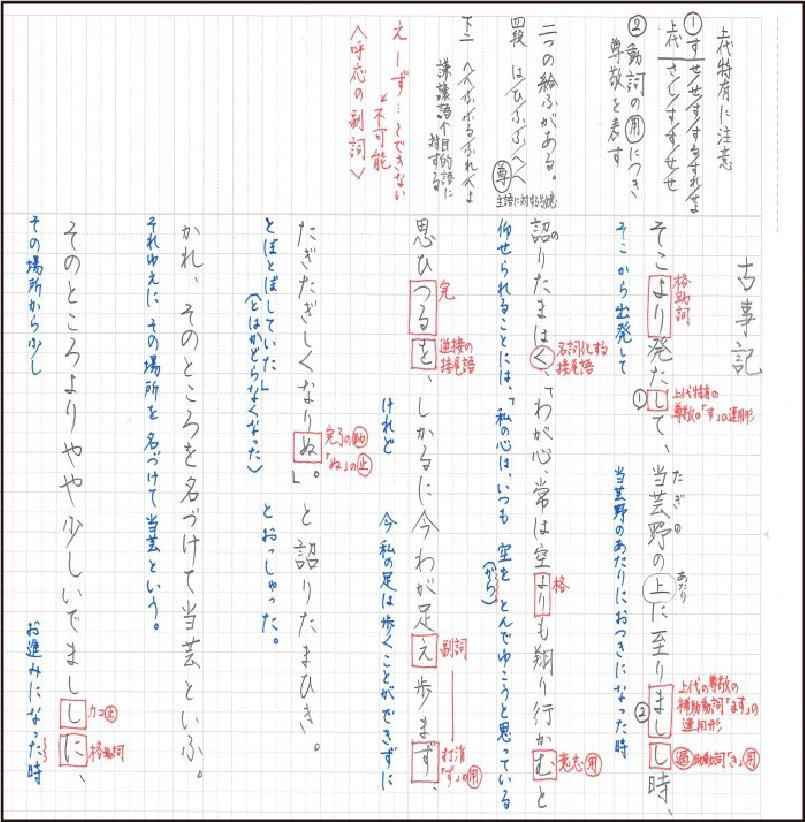 古事記
そこより発たして、当芸野の上に至りましし時、
たぎの
あたり
格助詞
上代特有の
尊敬の「す」の連用形
①
上代の尊敬の
補助動詞「ます」の
連用形
②
過 助動詞「き」用
そこから出発して
当芸野のあたりにおつきになった時
詔りたまはく、「わが心、常は空よりも翔り行かむと
の
名詞化する
接尾語
格
意志 用
仰せられることには、「私の心は、いつも 空を とんでゆこうと思っている
(から)
思ひつるを、しかるに今わが足え歩まず、
完
逆接の
接尾語
副詞
打消
「ず」の用
けれど
今 私の足は歩くことができずに
たぎたぎしくなりぬ」。と詔りたまひき。
完了の助
「ぬ」の止
とぼとぼしていた」
(とはかどらなくなった)
とおっしゃった。
かれ、そのところを名づけて当芸といふ。
それゆえに その場所を 名づけて当芸という。
そのところよりやや少しいでまししに、
カコ止
格助詞
その場所から少し
お進みになった時
上代特有に注意
①すせせすするすれせよ
上代 さしすすせせ
②動詞の用につき
尊敬を表す
二つの給ふがある。
四段 はひふふへへ
尊
下二 へへふふるふれへよ
謙譲語
目的語に
対する
え―ず…とできない
不可能
〈呼応の副詞〉